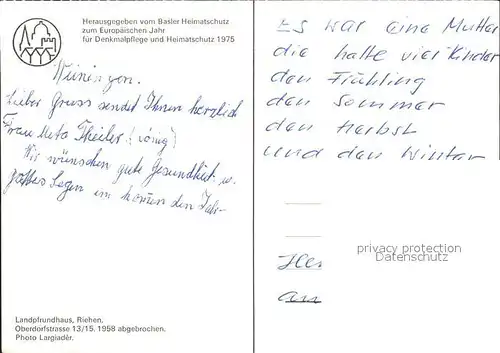 Herausgegeben vom Basler Heimatschutz
zum Europäischen Jahr
für Denkmalpflege und Heimatschutz 1975
Weiningen.
Lieber Gruss sendet Ihnen herzlich
Frau Meta Theiler (König)
Wir wünschen gute Gesundheit u.
Gottes Segen im kommen den Jahr
Landpfrundhaus, Riehen.
Oberdorfstrasse 13/15. 1958 abgebrochen.
Photo Largiadèr.
Es war eine Mutter
die hatte vier Kinder
den Frühling
den Sommer
den Herbst
und den Winter
privacy protection
Datenschutz